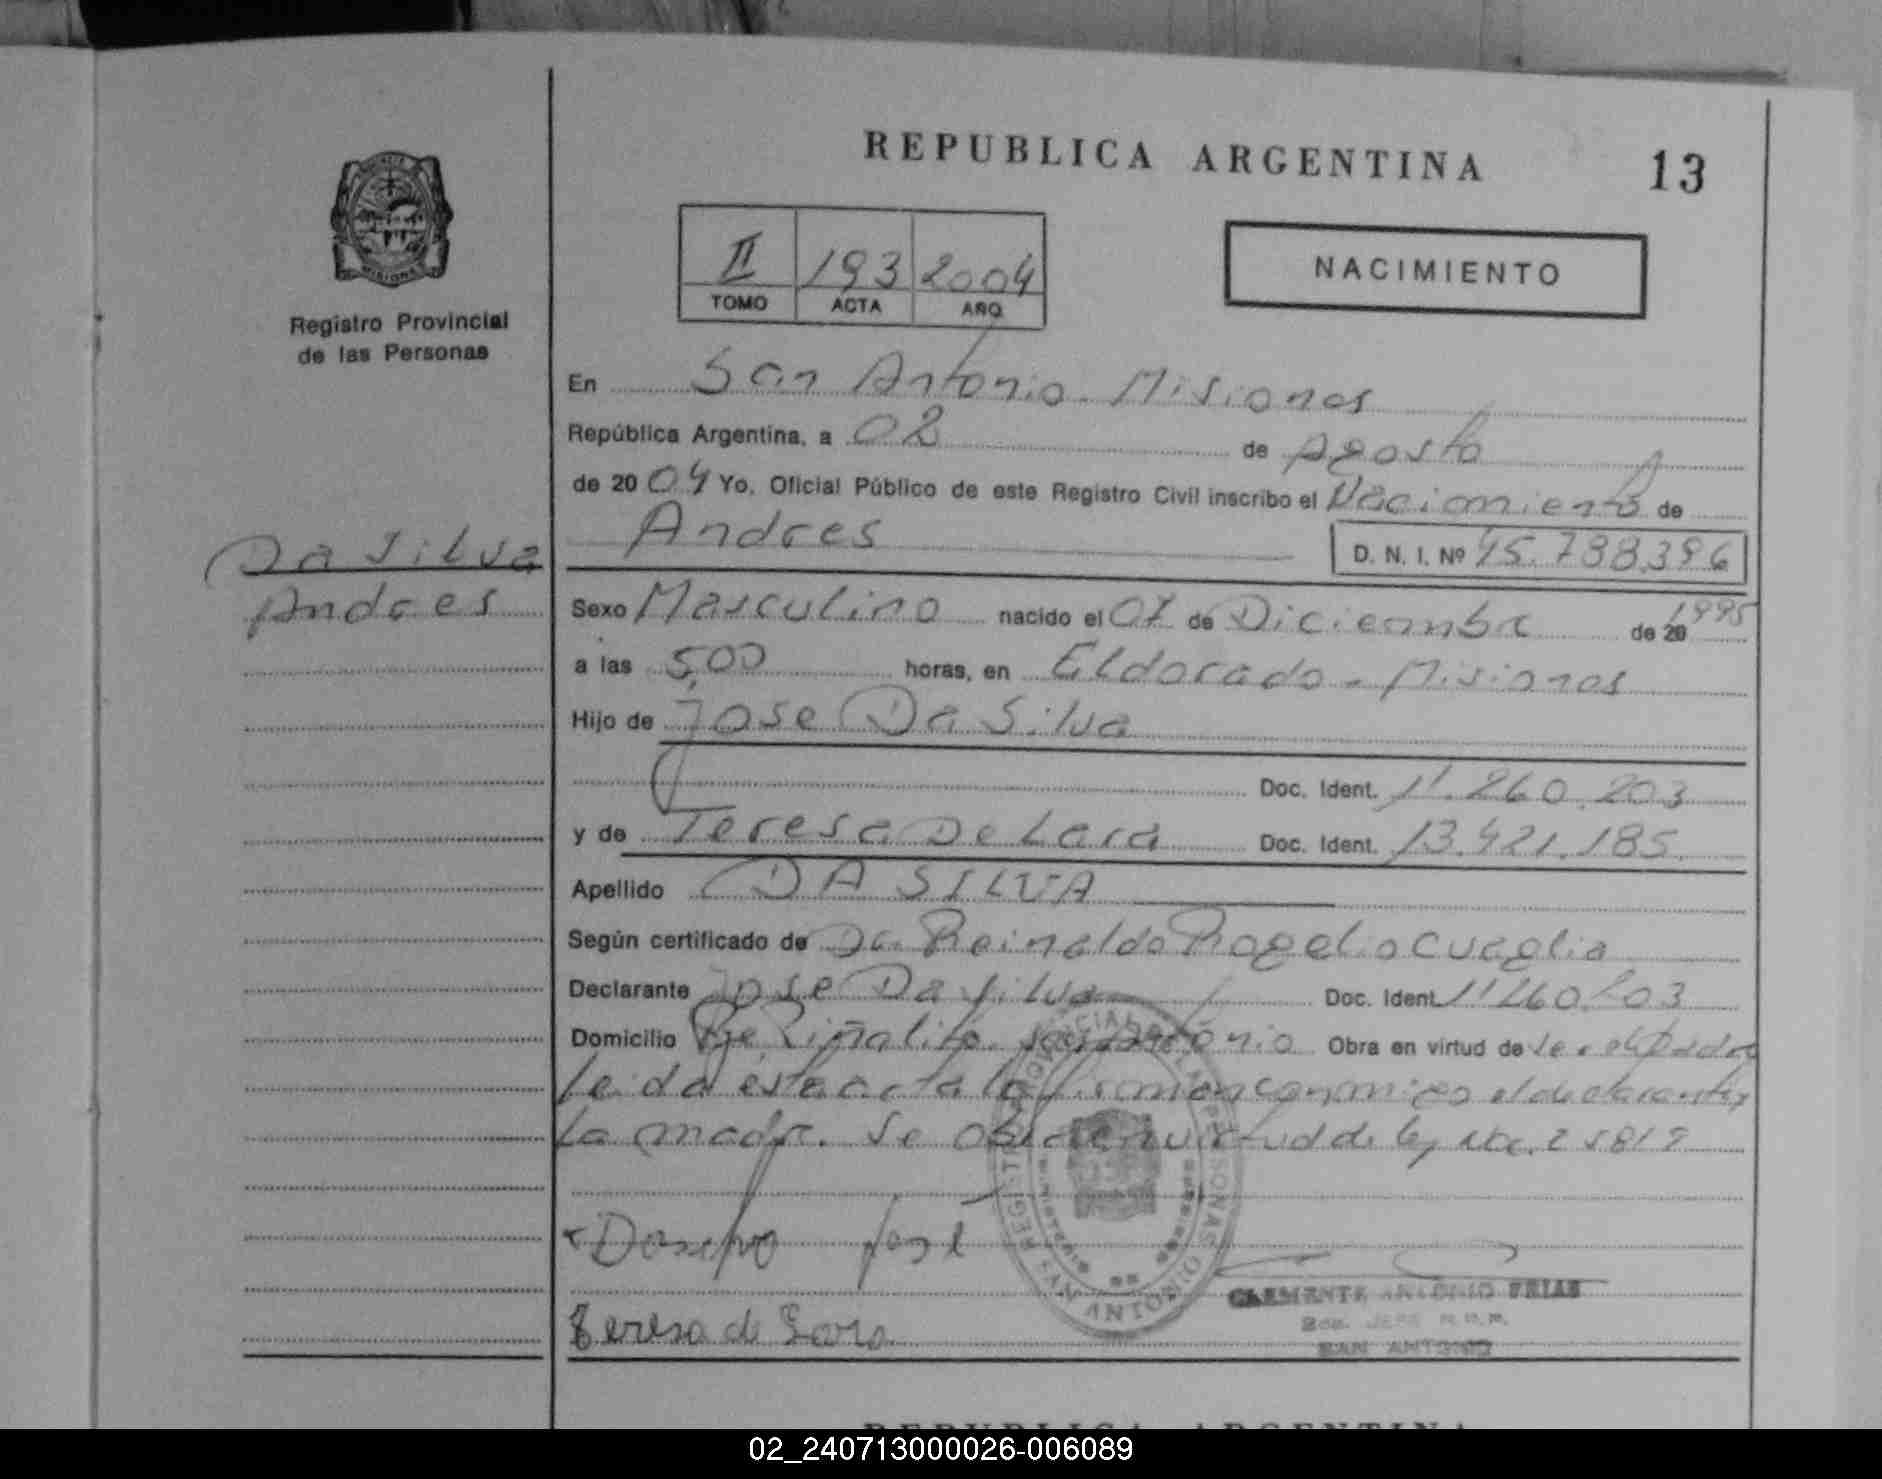 REPUBLICA ARGENTINA
13
II 193 2004
TOMO ACTA AÑO
NACIMIENTO
Registro Provincial
de las Personas
En San Antonio - Misiones
República Argentina, a 02 de Agosto
de 2004 Yo, Oficial Público de este Registro Civil inscribo el Nacimiento de
Andres
D. N. I. Nº 45.788.396
Da Silva
Andres
Sexo Masculino nacido el 07 de Diciembre de 20 1995
a las 5,00 horas, en Eldorado - Misiones
Hijo de Jose Da Silva
Doc. Ident. 11.260.203
y de Teresa De Lara Doc. Ident. 13.421.185
Apellido DA SILVA
Según certificado de Dr. Reinaldo Rogelio Cuaglia
Declarante Jose Da Silva Doc. Ident. 11260203
Domicilio Pje Piñalito San Antonio Obra en virtud de ser el Padre
leida esta acta la firman conmigo el declarante y
La madre. Se en virtud de ley Nro. 25819
Jose
Teresa de Lara
REGISTRO PROVINCIAL DE LAS PERSONAS
SAN ANTONIO
CLEMENTE ANTONIO FRIAS
SAN ANTONIO
REPUBLICA ARGENTINA
02_240713000026-006089